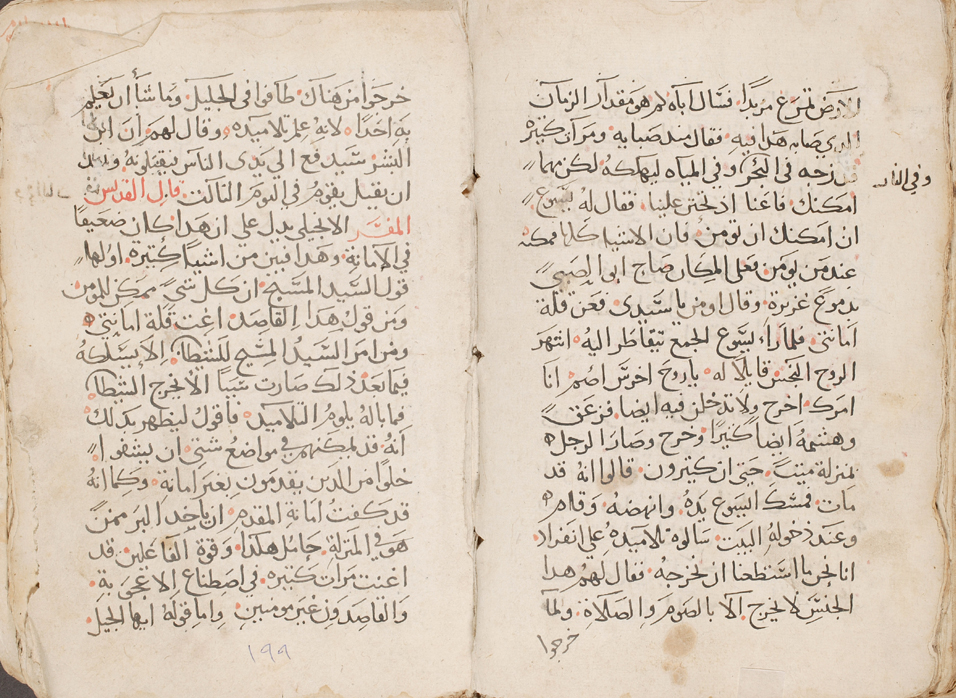 الارض تمرغ مزبدا. فسال اباه كم هو مقدار الزمان
الذي صابه هذا فيه. فقال منذ صبايه. ومرار كثيره
قد زجه في النار وفي المياه ليهلكه لكن مهما
وفي النار
امكنك فاغثنا اذ تحنن علينا. فقال له يسوع
ان امكنك ان تومن. فان الاشيا كلها ممكنه
عند من يومن. فعلي المكان صاح ابو الصبي
بدموع غزيره. وقال اومن يا سيدي. فعن قلة
امانتي. فلما راء يسوع الجمع تتقاطر اليه. انتهر
الروح النجس قايلا له. ياروح اخرس اصم. انا
امرك. اخرج ولا تدخلن فيه ايضا. فزعق
وهشمه ايضا كثيرا. وخرج وصار الرجل
بمنزلة ميتا. حتي ان كثيرون. قالوا انه قد
مات. فمسك ايسوع يده. وانهضه. وقام
وعند دخوله البيت. سالوه تلاميده علي انفراد
انا نحن ما استطعنا ان نخرجه. فقال لهم هدا
الجنس لا يخرج. الا بالصوم والصلاة. ولما
خرجوا
خرجوا من هناك. طافوا في الجليل. وما شا ان يعلم
به احدا. لانه علم تلاميده. وقال لهم. ان ابن
البشر سيدفع الي يدي الناس فيقتلونه. وبعد
ان يقتل يقوم في اليوم الثالت. قال القديس
المفسر الانجيلي يدل علي ان هدا كان ضعيفا
في الامانه. وهدا فبين من اشيا كثيره. اولها
قول السيد المسيح. ان كل شي ممكن للمومن
ومن قول هدا القاصد. اغت قلة امانتي.
ومن امر السيد المسيح للشيطان. الا يسلكه
فيما بعد. دلك صارت سببا الا يخرج الشيطان
فما باله يلوم التلاميد. فاقول ليظهر بدلك
انه قد يمكنهم في مواضع شتي. ان يشفوا
خلوا من الدين يقدمون بغير امانه. وكما انه
قد كفت امانة المقدم. ان ياخد البر ممن
هو في المنزلة. حامل هكدا. وقوة الفاعلين. قد
اغنت مرات كتيره. في اصطناع الاعجوبة.
والقاصدون غير مومنين. واما قوله ايها الجيل
١٩٩